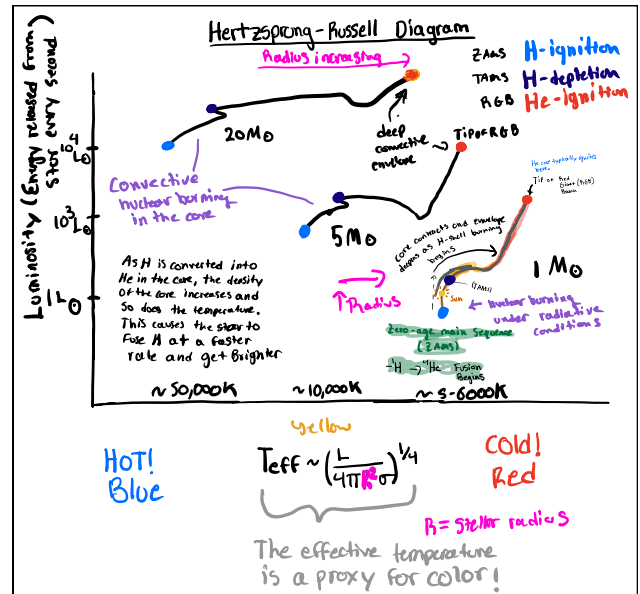 Hertzsprung-Russell Diagram
Radius increasing
ZAMS H-ignition
TAMS H-depletion
RGB He-ignition
Luminosity (Energy released from
star every second
10⁴ L⊙
10² L⊙
1 L⊙
20M⊙
deep
convective
envelope
Tip of RGB
Convective
nuclear burning
in the core
5M⊙
He core typically ignites
here.
Tip of Red
Giant (RGB)
Branch
Core contracts and envelope
deepens as H-shell burning
begins
1 M⊙
(TAMS)
Sun
↑Radius
nuclear burning
under radiative
conditions
As H is converted into
He in the core, the density
of the core increases and
so does the temperature.
This causes the star to
Fuse H at a faster
rate and get Brighter
Zero-age main sequence
(ZAMS)
-¹H → ⁴He Fusion
Begins
~50,000K ~10,000K ~5-6000K
yellow
HOT!
Blue
Teff ~ (L / 4πR²σ)^1/4
COLD!
Red
R = stellar radius
The effective temperature
is a proxy for color!